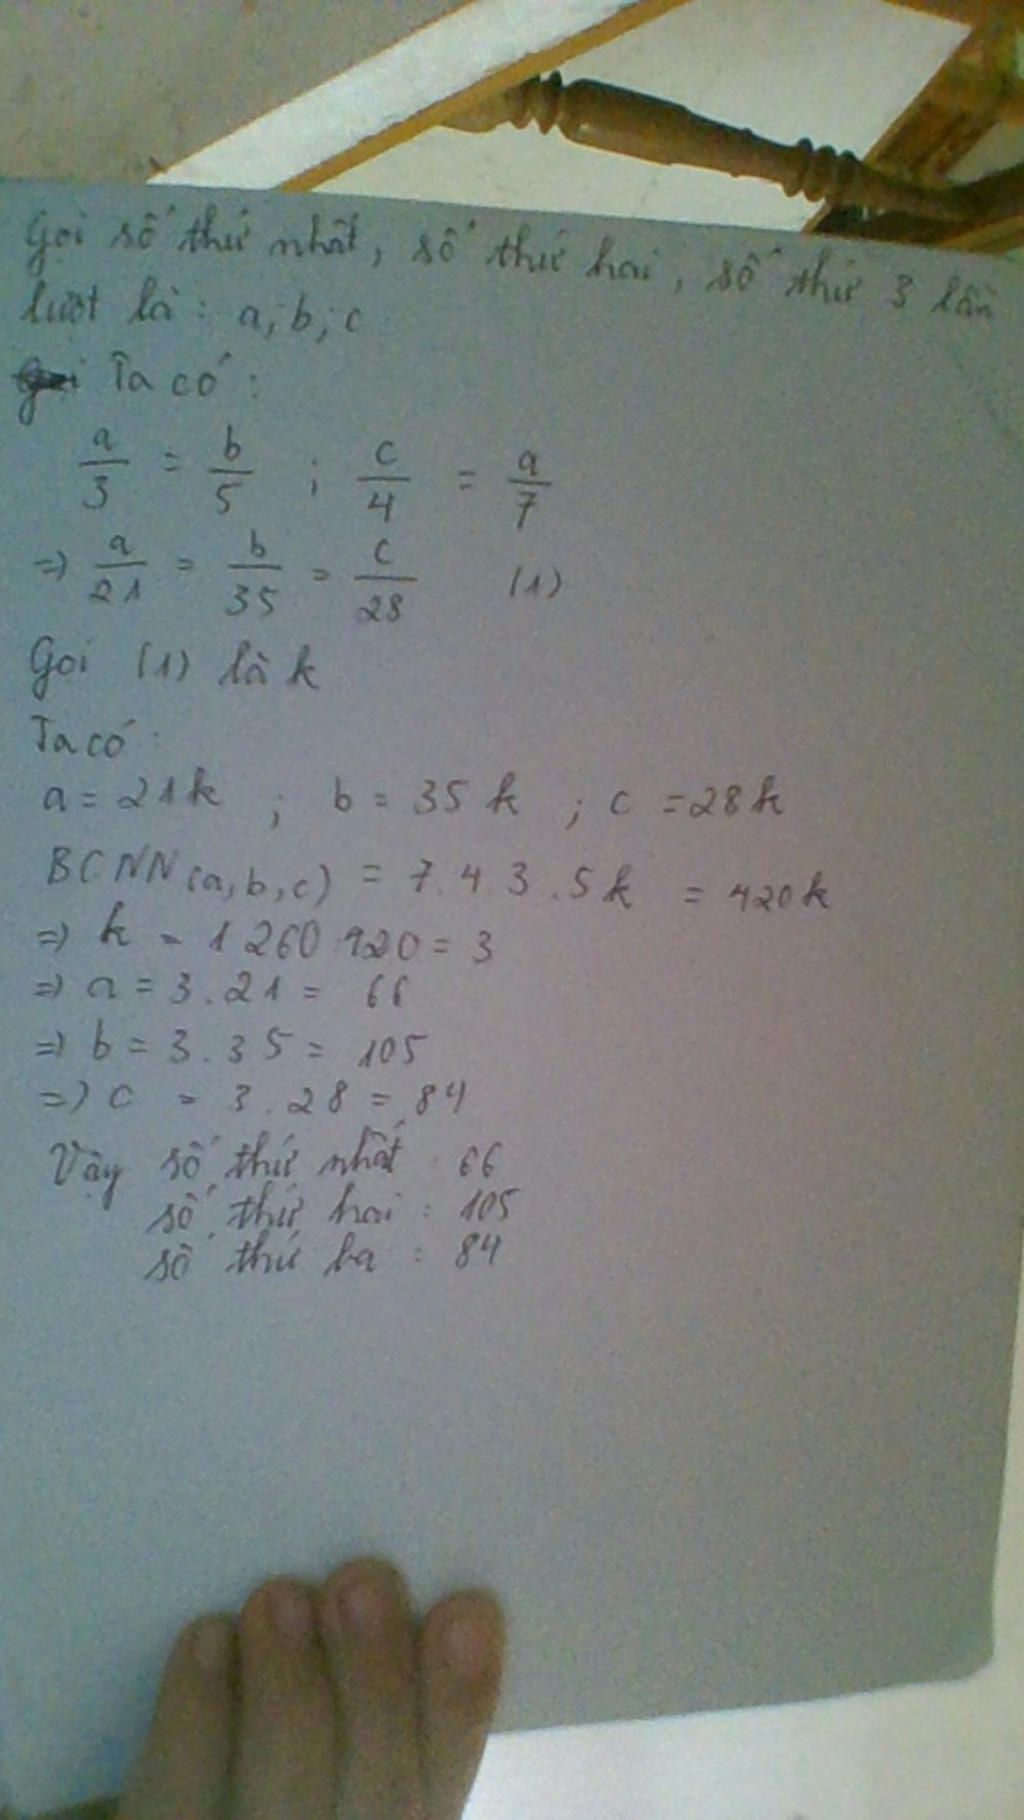 Gọi số thứ nhất, số thứ hai, số thứ 3 lần
lượt là: a, b, c
Ta có:
a/3 = b/5 ; c/4 = a/7
=> a/21 = b/35 = c/28 (1)
Gọi (1) là k
Ta có:
a = 21k ; b = 35k ; c = 28k
BCNN(a,b,c) = 7.4.3.5k = 420k
=> k = 1260:420 = 3
=> a = 3.21 = 66
=> b = 3.35 = 105
=> c = 3.28 = 84
Vậy số thứ nhất: 66
số thứ hai: 105
số thứ ba: 84